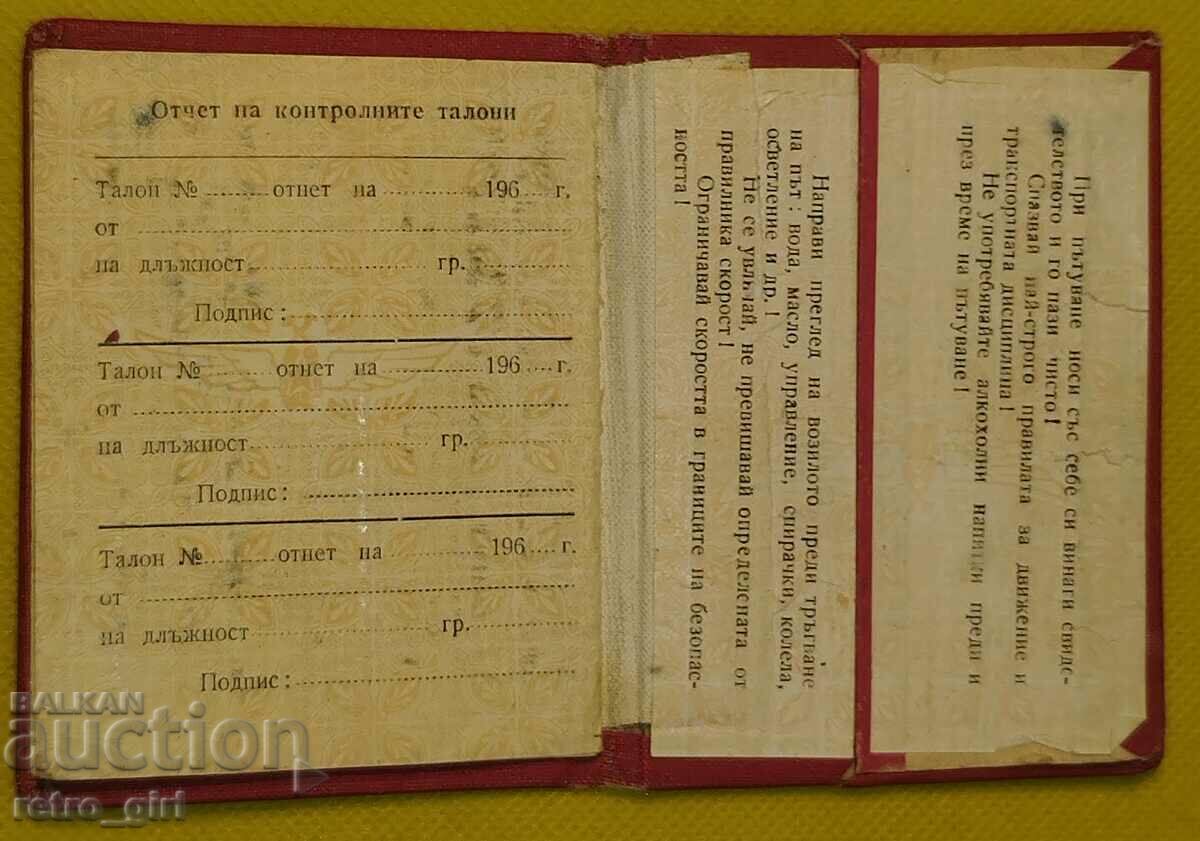 Отчет на контролните талони
Талон № ........ отнет на ............ 196.... г.
от ............
на длъжност ............ гр. ............
Подпис : ............
Талон № ........ отнет на ............ 196.... г.
от ............
на длъжност ............ гр. ............
Подпис : ............
Талон № ........ отнет на ............ 196.... г.
от ............
на длъжност ............ гр. ............
Подпис : ............
Направи преглед на возилото преди тръгване
на път : вода, масло, управление, спирачки, колела,
осветление и др. !
Не се увличай, не превишавай определената от
правилника скорост !
Ограничавай скоростта в границите на безопас-
ността !
При пътуване носи със себе си винаги свиде-
телството и го пази чисто !
Спазвай най-строго правилата за движение и
транспортната дисциплина !
Не употребявайте алкохолни напитки преди и
през време на пътуване !
BALKAN
auction
retro_girl